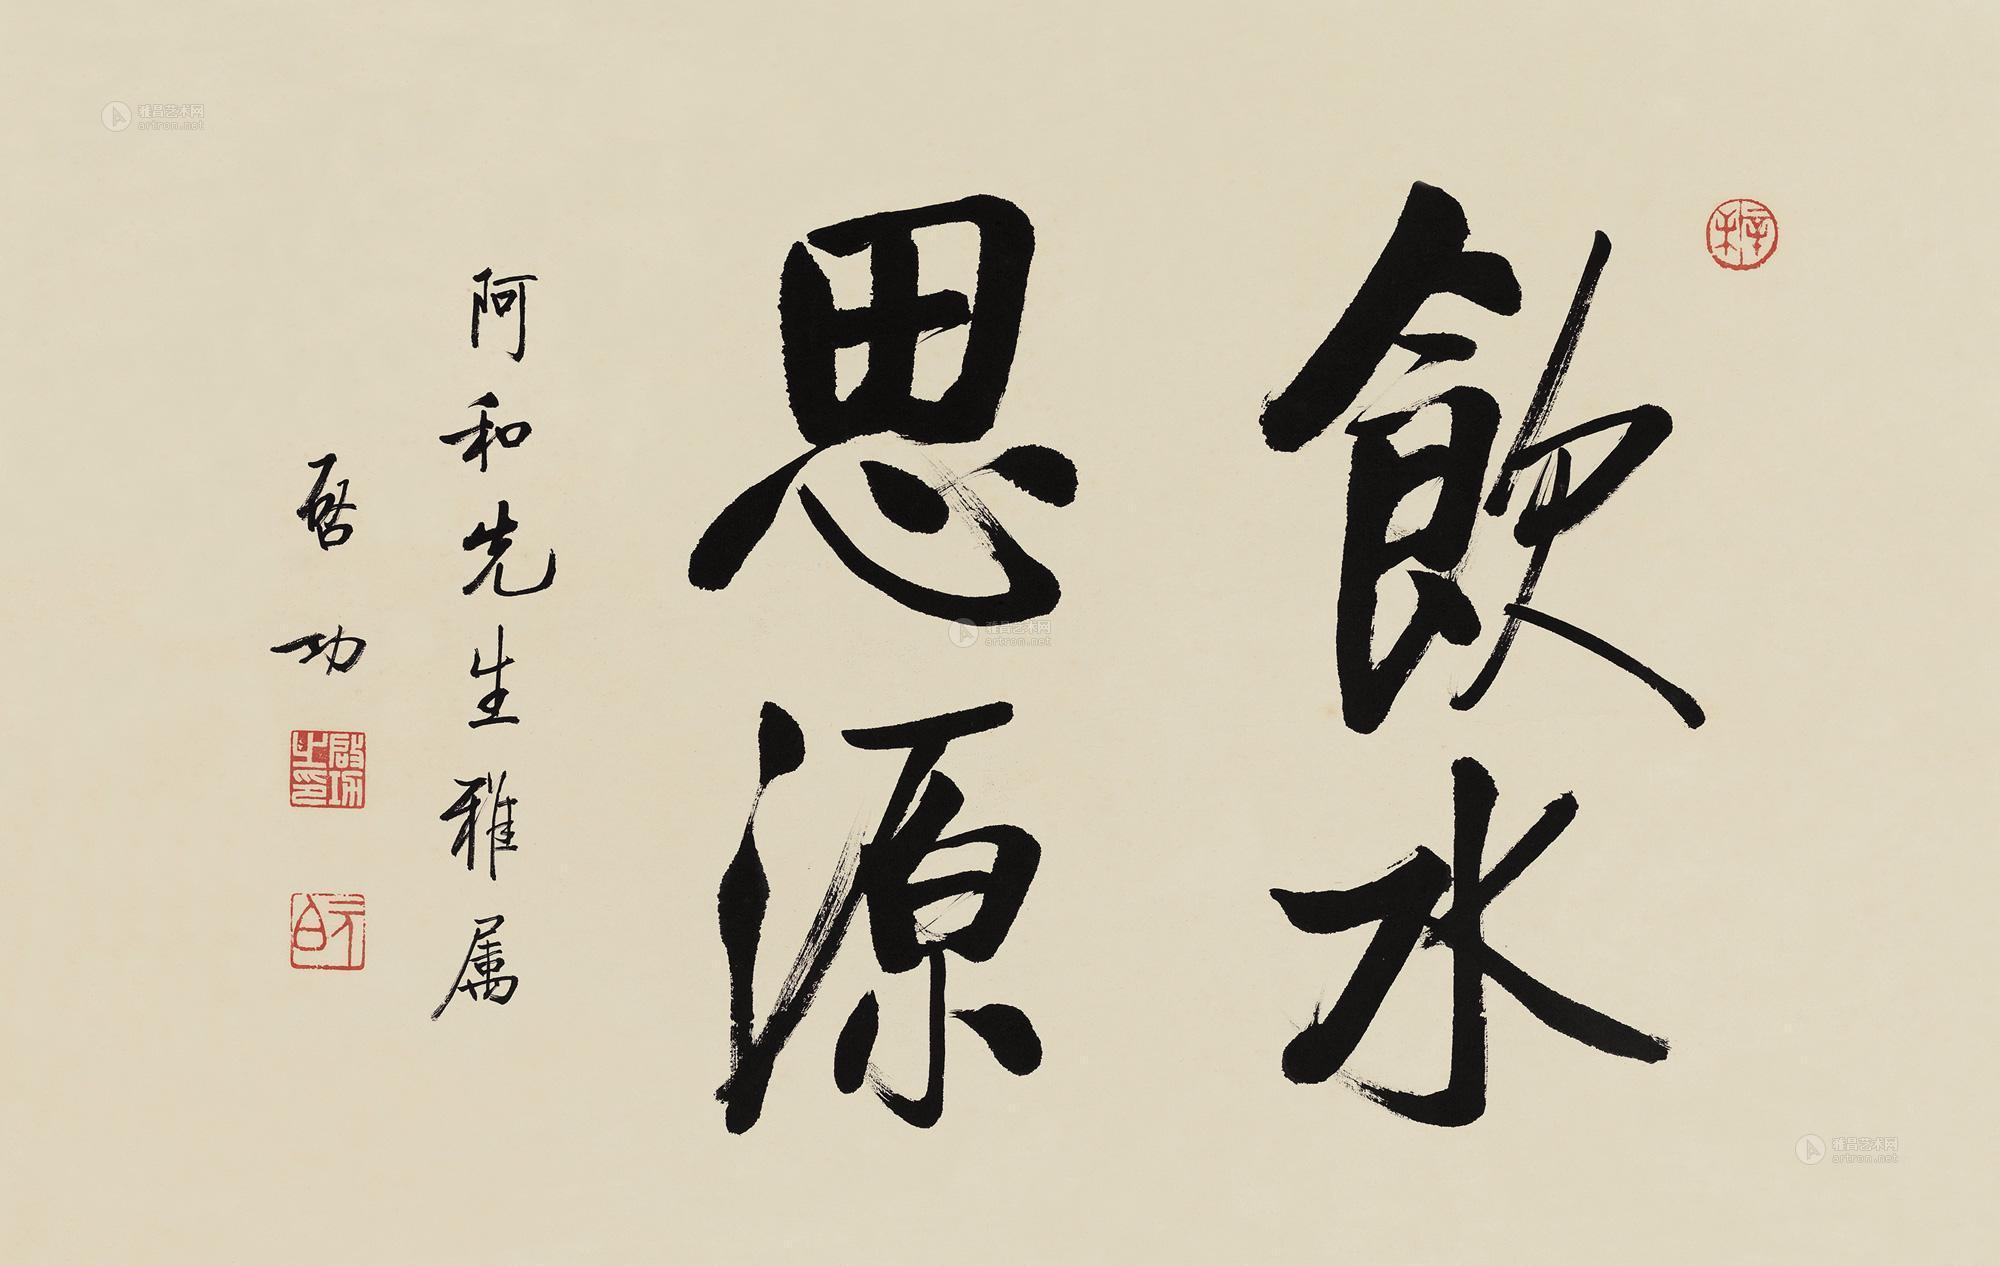 飲水
思源
阿和先生雅属
启功
啟功之印
元白
雅昌艺术网
artron.net
雅昌艺术网
artron.net
雅昌艺术网
artron.net